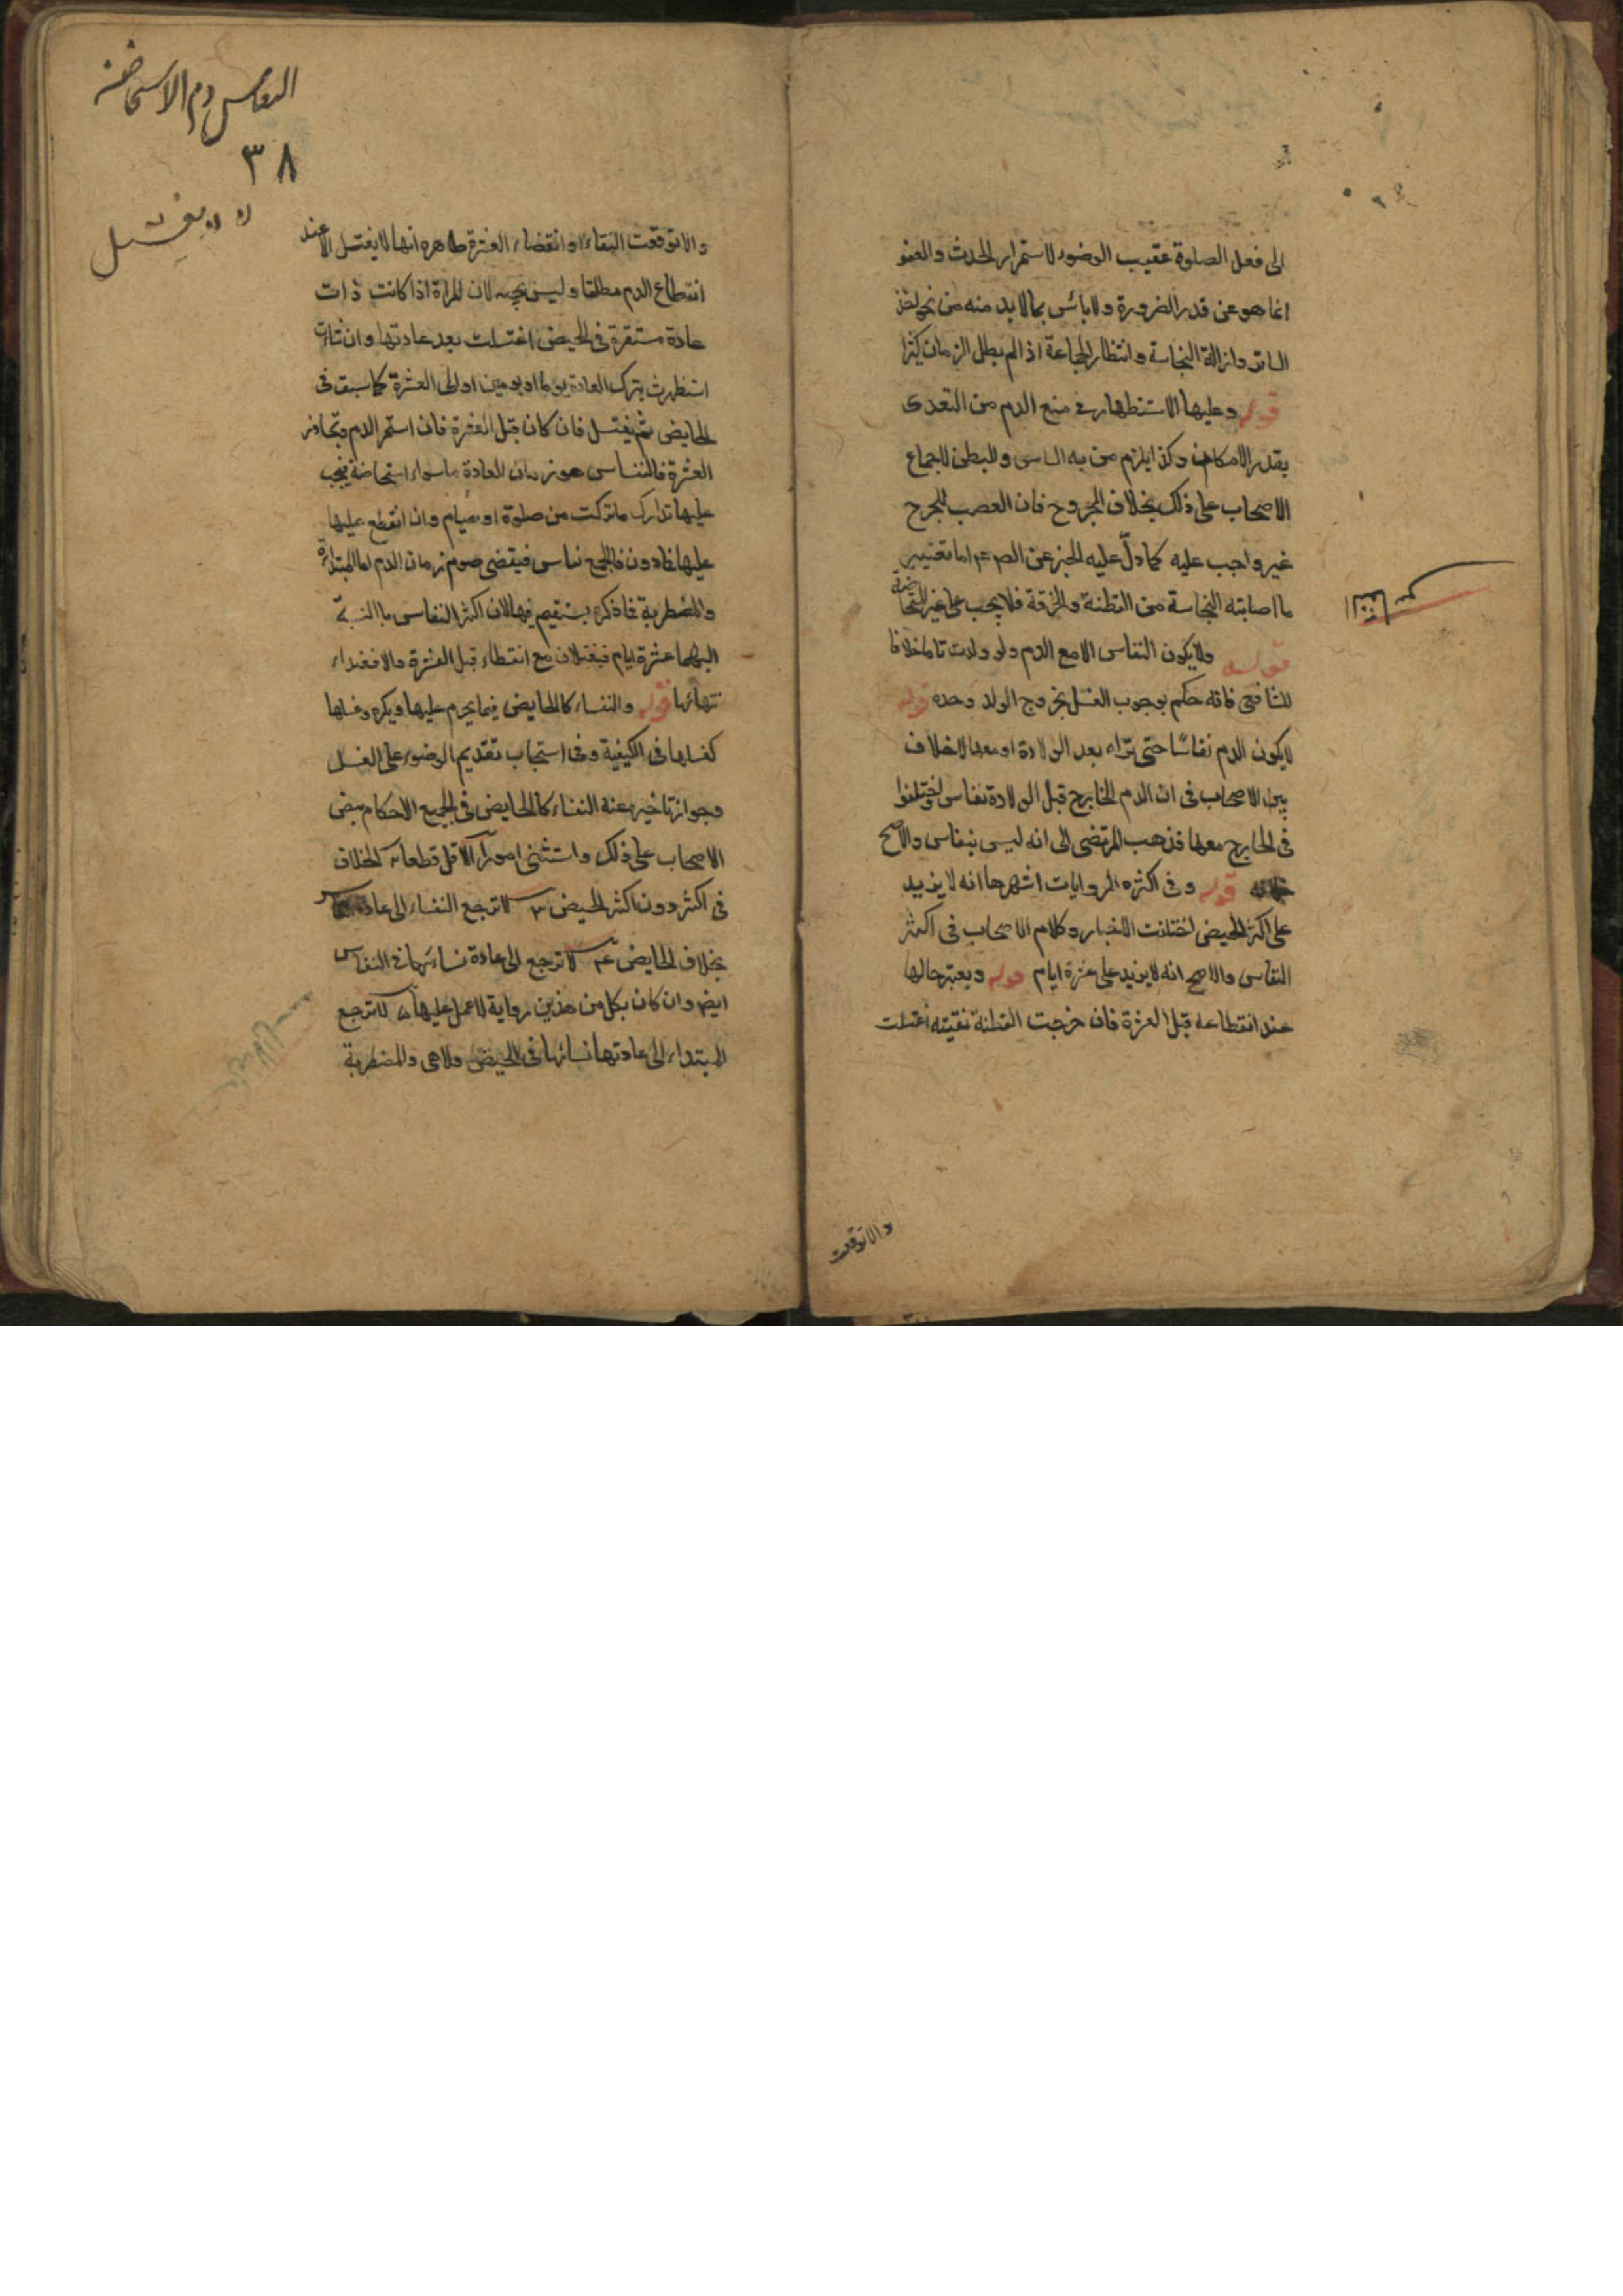 الى فعل الصلوة عقيب الوضوء لاستمرار الحدث والعفو
انما هو عن قدر الضرورة ولا بائس بما لابد منه من نحو اخذ
الساتر وازالة النجاسة وانتظار الجماعة اذا لم يطل الزمان كثيرا
قوله وعليها الاستظهار فى منع الدم من التعدى
بقدر الامكان وكذا يلزم من به السلس والبطن لاجماع
الاصحاب على ذلك بخلاف المجروح فان العصب للجرح
غير واجب عليه كما دلّ عليه الخبر عن الص ع اما تغيير
ما اصابته النجاسة من القطنة والخرقة فلا يجب على غير المستحاضة
النفاس
قوله ولا يكون النفاس الا مع الدم ولو ولدت تاما خلافا
للشافعى فانه حكم بوجوب الغسل بخروج الولد وحده قوله
لا يكون الدم نفاسًا حتى تراه بعد الولادة او معها لا خلاف
بين الاصحاب فى ان الدم الخارج قبل الولادة نفاس واختلفوا
فى الخارج معها فذهب المرتضى الى انه ليس بنفاس والاصح
قوله وفى اكثره الروايات اشهرها انه لا يزيد
على اكثر الحيض اختلفت الاخبار وكلام الاصحاب فى اكثر
النفاس والاصح انه لا يزيد على عشرة ايام قوله ويعتبر حالها
عند انقطاعه قبل العشرة فان خرجت القطنة نقيته اغتسلت
والا توقعت
النفاس دم الاستحاضة
٣٨
يغتسل
والا توقعت النقاء او انقضاء العشرة ظاهره انها لا يغتسل الا عند
انقطاع الدم مطلقا وليس بجيد لان المراة اذا كانت ذات
عادة مستقرة فى الحيض اغتسلت بعد عادتها وان شاءت
استظهرت بترك العادة يوما او يومين او الى العشرة كما سبق فى
الحايض ثم يغتسل فان كان قبل العشرة فان استمر الدم وتجاوز
العشرة فالنفاس هو زمان العادة ماسواه استحاضة فيجب
عليها تدارك ماتركت من صلوة او صيام وان انقطع عليها
عليها فادون فالجميع نفاس فيقضى صوم زمان الدم اما المبتداة
والمضطربة فاذكره يستقيم فيها لان اكثر النفاس باالنسبة
اليهما عشرة ايام فيغتسلان مع انقطاء قبل العشرة والا فعنداء
نتهائها قوله والنفساء كالحايض فيما يحرم عليها ويكره وغسلها
كغسلها فى الكيفية وفى استحباب تقديم الوضوء على الغسل
وجواز تاخيره عنه النفساء كالحايض فى الجميع الاحكام بنص
الاصحاب على ذلك واستثنى امورا الاقل قطعا ٢ الخلاف
فى اكثر دون اكثر الحيض ٣ لا ترجع النفساء الى عادة
بخلاف الحايض ٤ لا ترجع الى عادة نسائها فى النفاس
ايض وان كان بكل من هذين رواية لا عمل عليها ٥ لا ترجع
المبتداء الى عادتها نسائها فى الحيض ولا هى والمضطربة